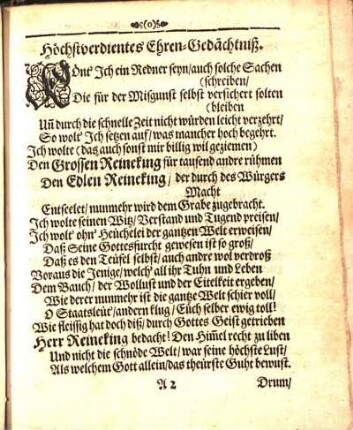 (o)
Höchstverdientes Ehren-Gedächtniß.
KÖnt' Ich ein Redner seyn/auch solche Sachen
(schreiben/
Die für der Mißgunst selbst versichert solten
(bleiben
Uñ durch die schnelle Zeit nicht würden leicht verzehrt/
So wolt' Ich setzen auf/was mancher hoch begehrt.
Ich wolte (das auch sonst mir billig wil geziemen)
Den Grossen Reincking für tausend andre rühmen
Den Edlen Reincking/ der durch des Würgers
Macht
Entseelet/ nunmehr wird dem Grabe zugebracht.
Ich wolte seinen Witz/ Verstand und Tugend preisen/
Ich wolt' ohn' Heüchelei der gantzen Welt erweisen/
Daß Seine Gottesfurcht gewesen ist so groß/
Daß es den Teüfel selbst/ auch andre wol verdroß
Voraus die Jenige/ welch' all ihr Tuhn und Leben
Dem Bauch/ der Wollust und der Eitelkeit ergeben/
Wie derer nunmehr ist die gantze Welt schier voll/
O Staatsleüt'/andern klug/ Eüch selber ewig toll!
Wie fleissig hat doch diß/ durch Gottes Geist getrieben
Herr Reincking bedacht! Den Him̃el recht zu liben
Und nicht die schnöde Welt/ war seine höchste Lust/
Als welchem Gott allein/das theürste Guht bewust.
A 2
Drum/